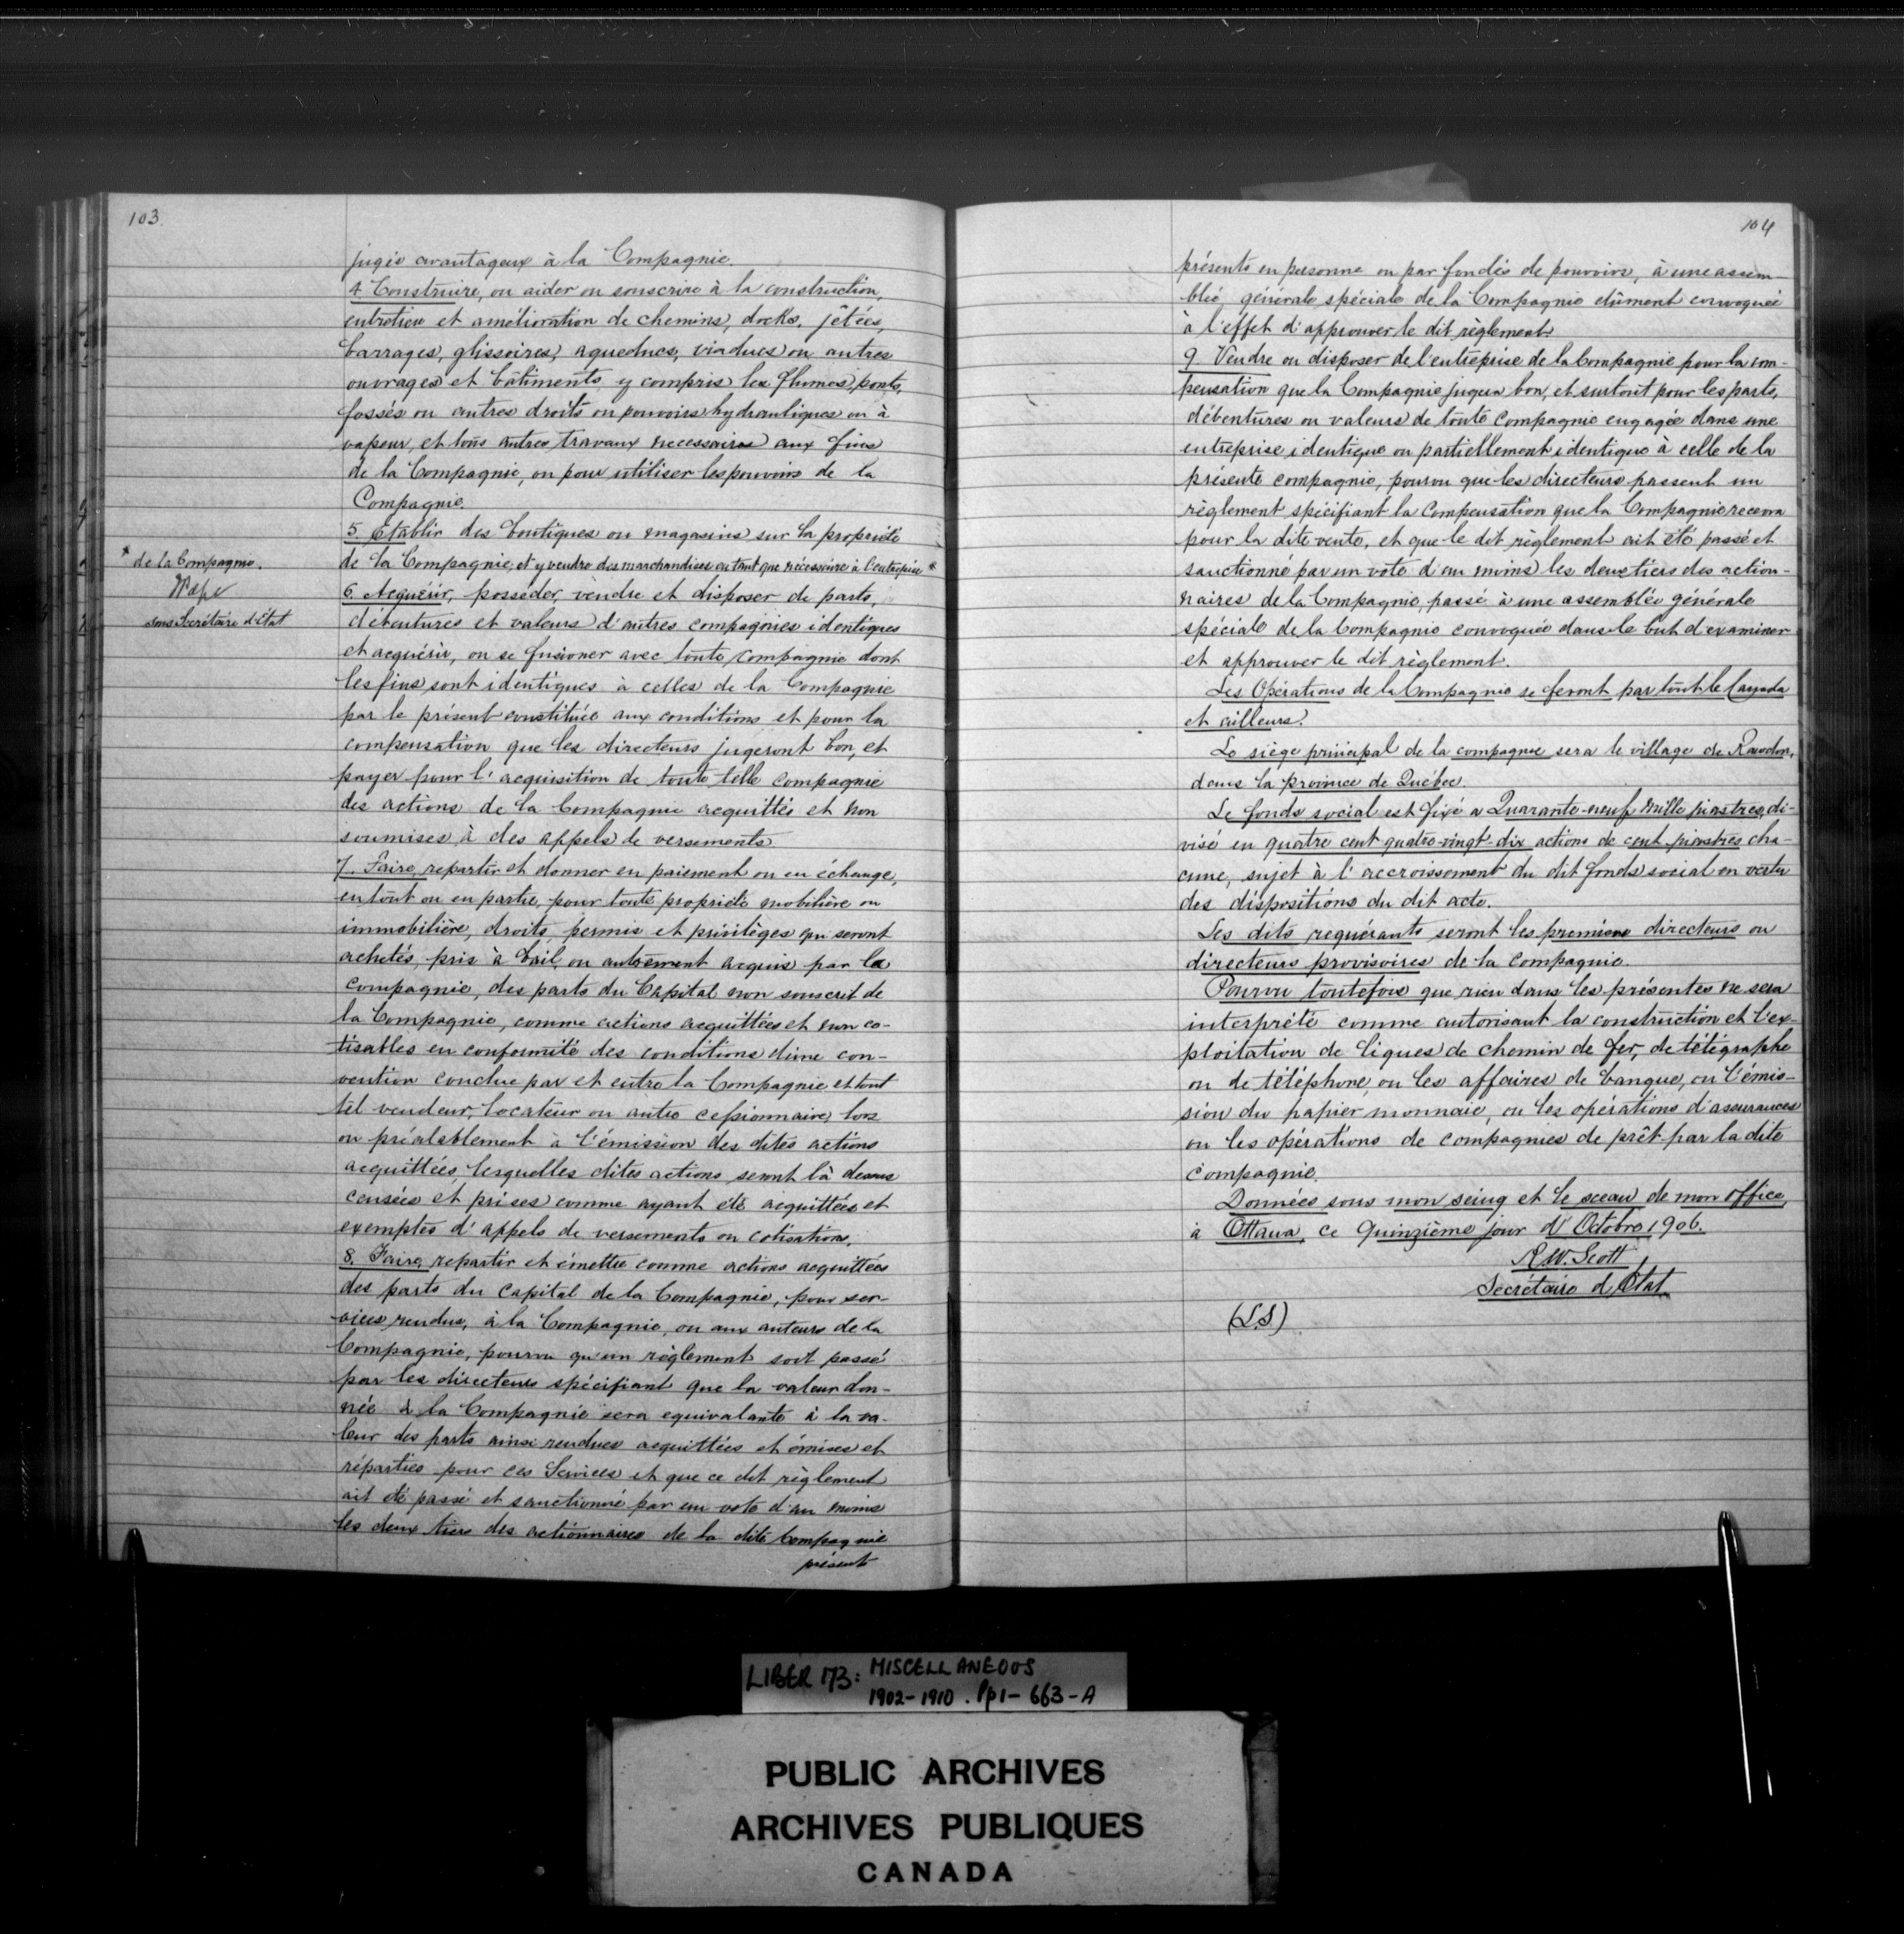 103
jugés avantageux à la Compagnie.
4 Construire, ou aider ou souscrire à la construction,
entretien et amélioration de chemins, docks, jêtées,
barrages, glissoires, aqueducs, viaducs ou autres
ouvrages et bâtiments, y compris les flumes, ponts,
fossés ou autres droits ou pouvoirs hydrauliques ou à
vapeur, et tous autres travaux necessaires aux fins
de la Compagnie, ou pour utiliser les pouvoirs de la
Compagnie.
5 Etablir des boutiques ou magasins sur la propriété
de la Compagnie, et y vendre des marchandises en tant que nécessaire à l'entreprise *
* de la Compagnie.
JPope
sous Secrétaire d'Etat
6 Acquérir, posséder, vendre et disposer de parts,
débentures et valeurs d'autres compagnies identiques
et acquérir, ou se fusioner avec toute compagnie dont
les fins sont identiques à celles de la Compagnie
par le présent constituée aux conditions et pour la
compensation que les directeurs jugeront bon, et
payer pour l'acquisition de toute telle compagnie
des actions de la Compagnie acquittés et non
soumises à des appels de versements
7. Faire, repartir et donner en paiement ou en échange,
en tout ou en partie, pour toute propriété mobilière ou
immobilière, droits, permis et privilèges qui seront
achetés, pris à bail, ou autrement acquis par la
Compagnie, des parts du Capital non souscrit de
la Compagnie, comme actions acquittées et non co-
tisables en conformité des conditions d'une con-
vention conclue par et entre la Compagnie et tout
tel vendeur, locateur ou autre cessionnaire, lors
ou préalablement à l'émission des dites actions
acquittées, lesquelles dites actions seront là dessus
censées et prises comme ayant été acquittées et
exemptes d'appels de versements ou cotisations.
8. Faire, repartir et émettre comme actions acquittées
des parts du capital de la Compagnie, pour ser-
vices rendus, à la Compagnie, ou aux auteurs de la
Compagnie, pourvu qu'un règlement soit passé
par les directeurs spécifiant que la valeur don-
née à la Compagnie sera equivalante à la va-
leur des parts ainsi rendues acquittées et émises et
réparties pour ces Services et que ce dit règlement
ait été passé et sanctionné par un vote d'au moins
les deux tiers des actionnaires de la dite Compagnie
présents
104
présents en personne ou par fondés de pouvoirs, à une assem-
blée générale spéciale de la Compagnie dûment convoquée
à l'effet d'approuver le dit règlement.
9 Vendre ou disposer de l'entreprise de la Compagnie pour la com-
pensation que la Compagnie jugera bon, et surtout pour les parts,
débentures ou valeurs de toute compagnie engagée dans une
entreprise identique ou partiellement identique à celle de la
présente compagnie, pourvu que les directeurs passent un
règlement spécifiant la Compensation que la Compagnie recevra
pour la dite vente, et que le dit règlement ait été passé et
sanctionné par un vote d'au moins les deux tiers des action-
naires de la Compagnie, passé à une assemblée générale
spéciale de la Compagnie convoquée dans le but d'examiner
et approuver le dit règlement.
Les Opérations de la Compagnie se feront par tout le Canada
et ailleurs.
Le siège principal de la compagnie sera le village de Rawdon,
dans la province de Québec.
Le fonds social est fixé a Quarante-neuf mille piastres, di-
visé en quatre cent quatre-vingt-dix actions de cent piastres cha-
cune, sujet à l'accroissement du dit fonds social en vertu
des dispositions du dit acte.
Les dits requérants seront les premiers directeurs ou
directeurs provisoires de la Compagnie.
Pourvu toutefois que rien dans les présentes ne sera
interprété comme autorisant la construction et l'ex-
ploitation de lignes de chemin de fer, de télégraphe
ou de téléphone, ou les affaires de banque, ou l'émis-
sion du papier monnaie, ou les opérations d'assurances
ou les opérations de compagnies de prêt par la dite
compagnie.
Données sous mon seing et le sceau de mon office,
à Ottawa, ce quinzième jour d'Octobre 1906.
R.W. Scott
Secrétaire d'Etat
(L.S)
LIBER 173: MISCELLANEOUS
1902-1910. Pp1-663-A
PUBLIC ARCHIVES
ARCHIVES PUBLIQUES
CANADA